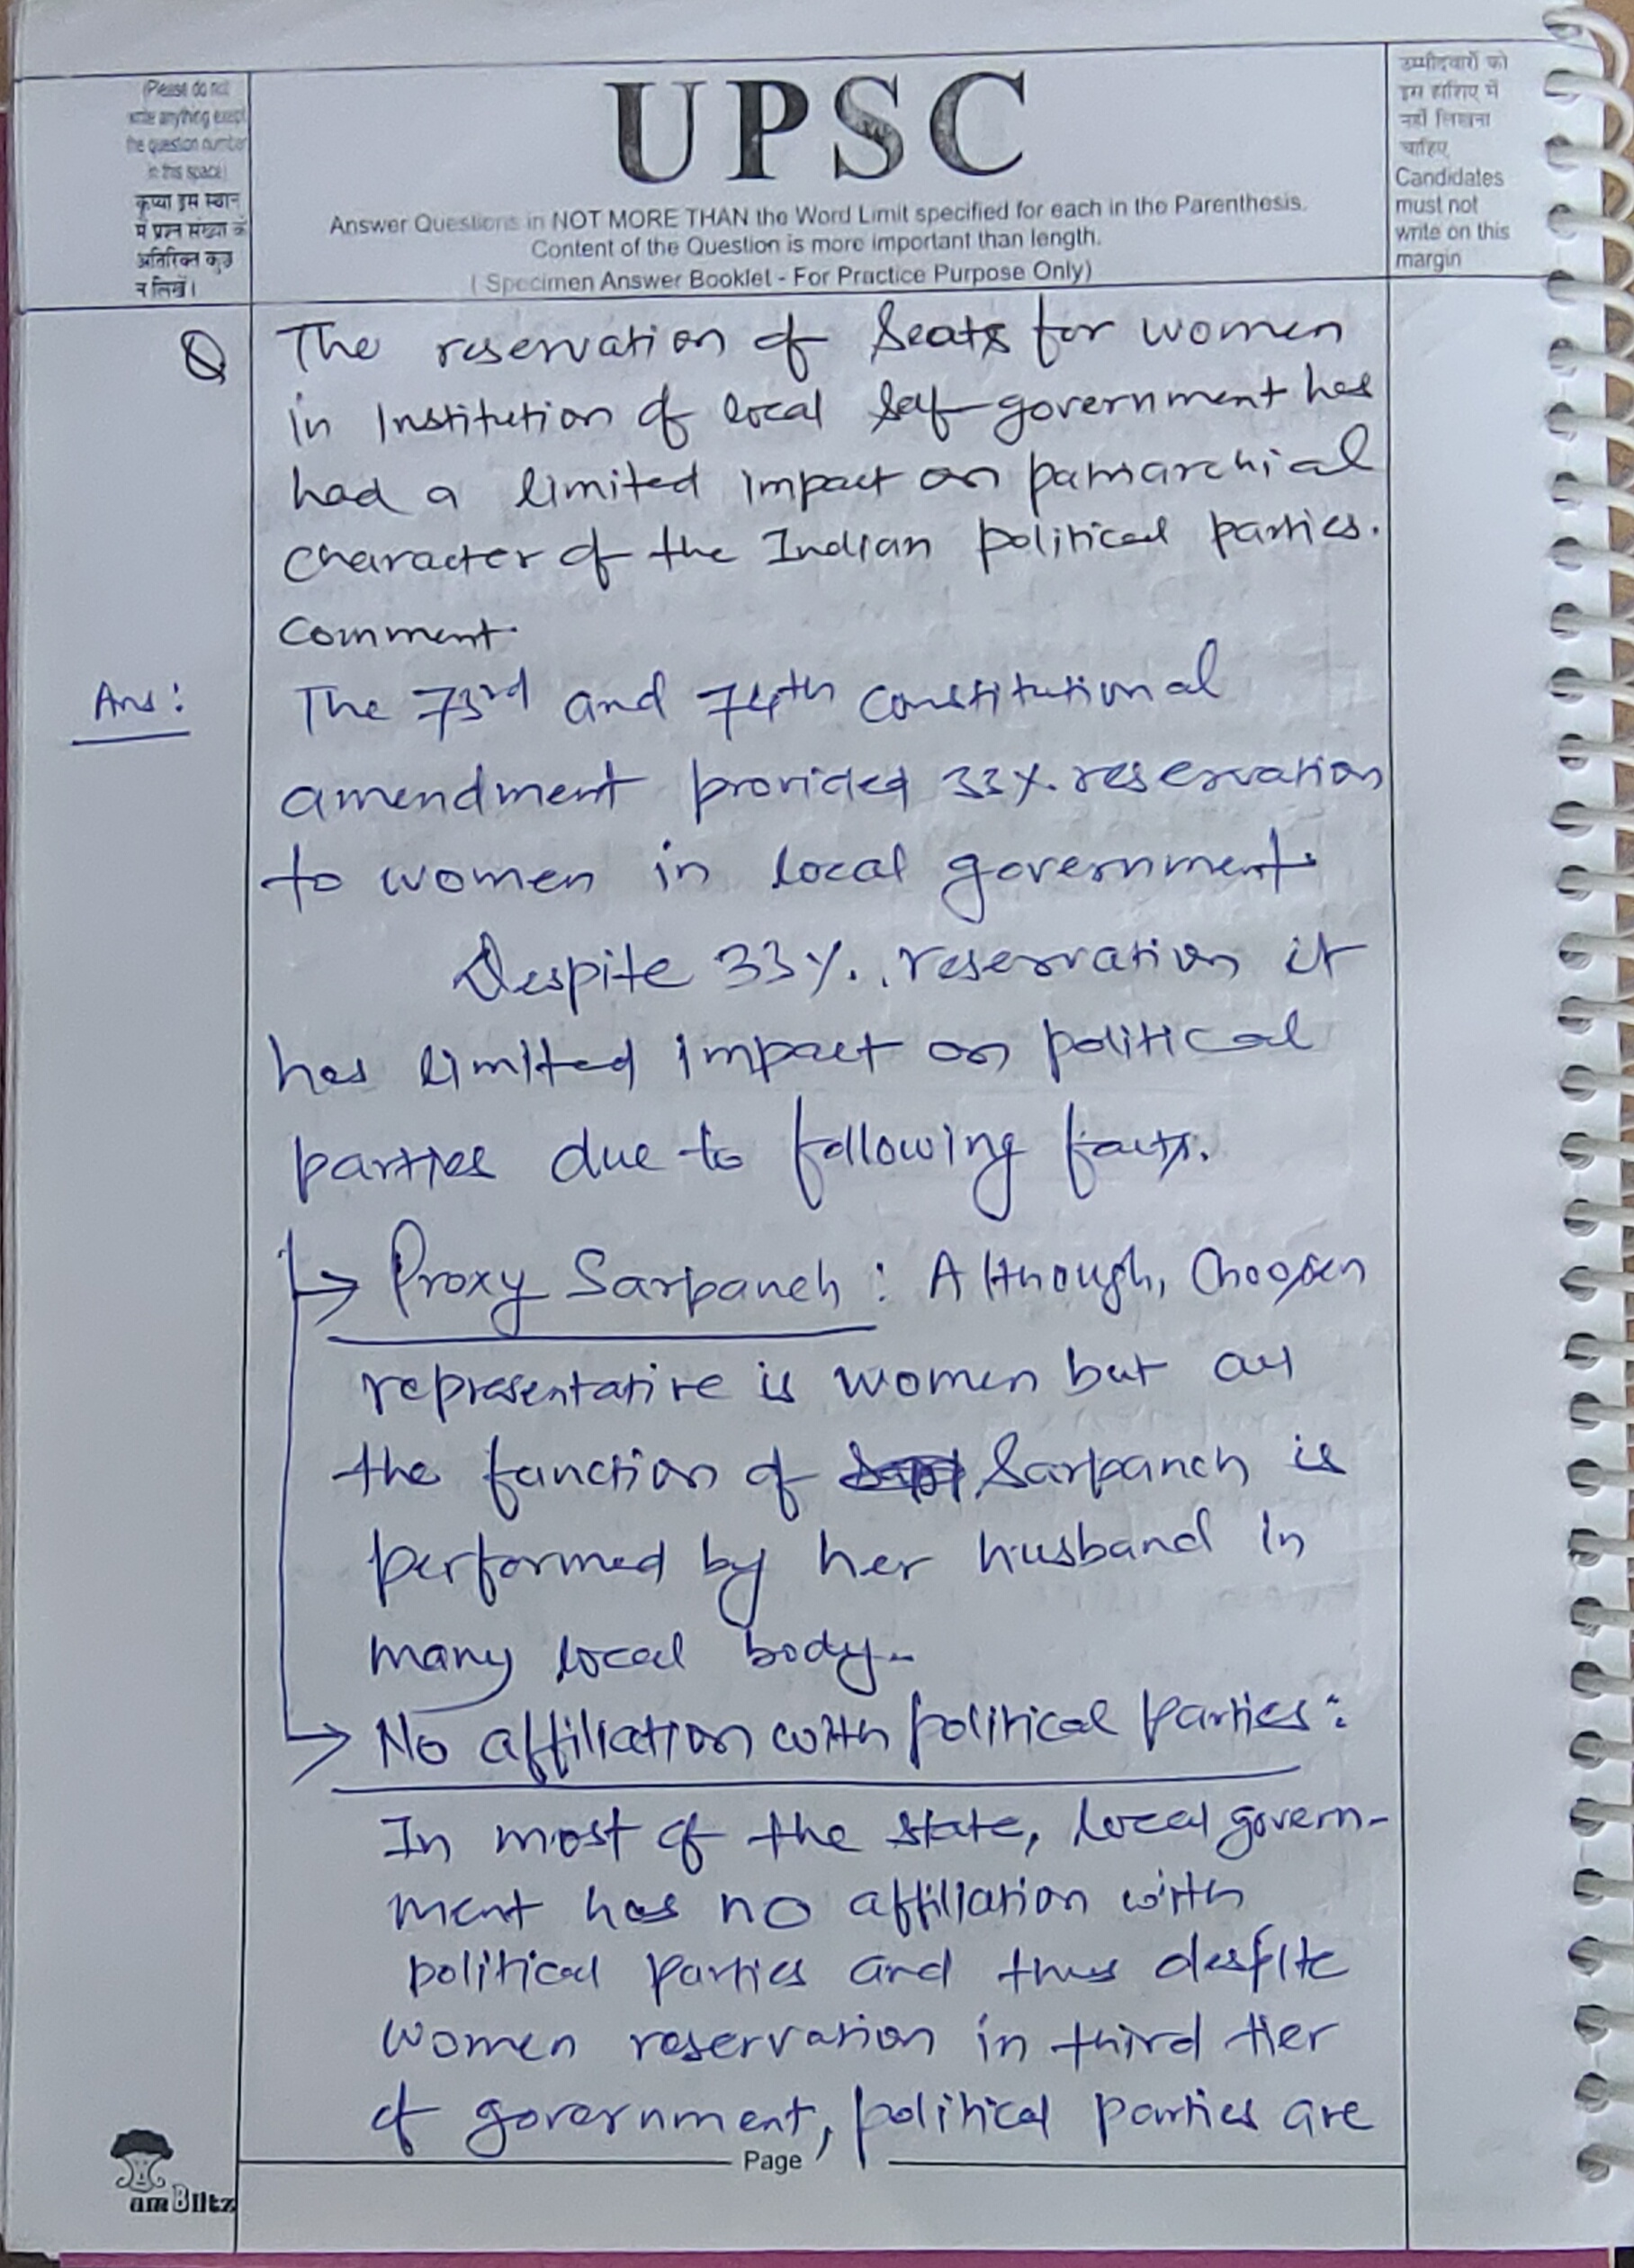 (Please do not
write anything except
the question number
in this space)
कृप्या इस स्थान
में प्रश्न संख्या के
अतिरिक्त कुछ
न लिखें।
UPSC
Answer Questions in NOT MORE THAN the Word Limit specified for each in the Parenthesis.
Content of the Question is more important than length.
( Specimen Answer Booklet - For Practice Purpose Only)
उम्मीदवारों को
इस हाशिए में
नहीं लिखना
चाहिए
Candidates
must not
write on this
margin
Q The reservation of Seats for women
in Institution of local Self-government has
had a limited impact on patriarchial
Character of the Indian political parties.
Comment.
Ans: The 73rd and 74th constitutional
amendment provided 33% reservation
to women in local government.
Despite 33% reservation it
has limited impact on political
parties due to following facts.
→ Proxy Sarpanch : Although, Choosen
representative is women but all
the function of Sarpanch is
performed by her husband in
many local body.
→ No affiliation with political Parties :
In most of the state, local govern-
ment has no affiliation with
political parties and thus despite
women reservation in third tier
of government, political parties are
Page
amBlitz